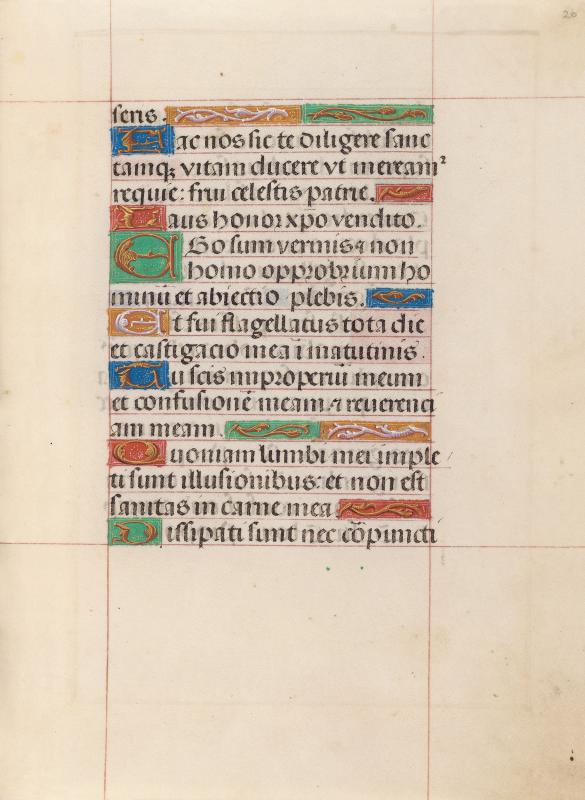 20
seris.
Fac nos sic te diligere sanc
tamq; vitam ducere vt meream²
requie: frui celestis patrie.
Laus honor xpo vendito.
EGo sum vermis ⁊ non
homo opprobrium ho
minū et abiectio plebis.
Et fui flagellatus tota die
et castigacio mea ī matutinis.
Tu scis improperiū meum
et confusionē meam ⁊ reuerenci
am meam.
Quoniam lumbi mei imple
ti sunt illusionibus: et non est
sanitas in carne mea
Dissipati sunt nec cōpuncti